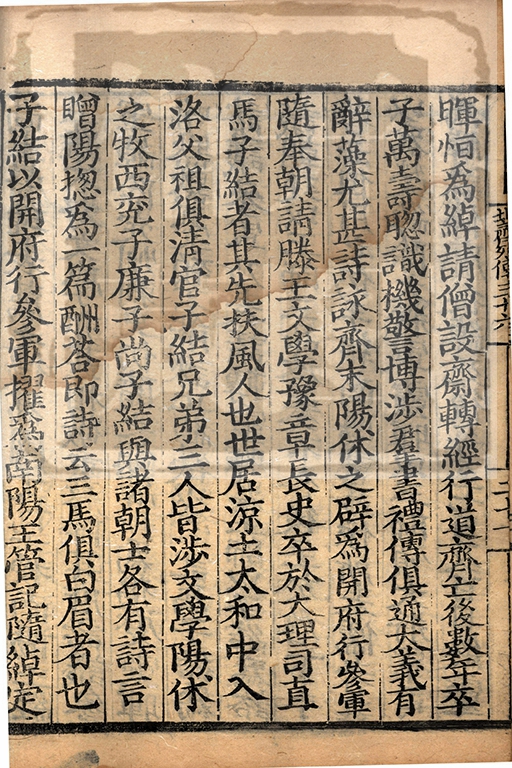 暉恒為綽請僧設齋轉經行道齊亡後數年卒
子萬壽聦識機警博涉羣書禮傳俱通大義有
辭藻尤甚詩詠齊末陽休之辟為開府行參軍
隨奉朝請滕王文學豫章長史卒於大理司直
馬子結者其先扶風人也世居凉土太和中入
洛父祖俱清官子結兄弟三人皆涉文學陽休
之牧西兖子廉子尚子結與諸朝士各有詩言
贈陽揔為一篇酬荅即詩云三馬俱白眉者也
子結以開府行參軍擢為南陽王管記隨綽定